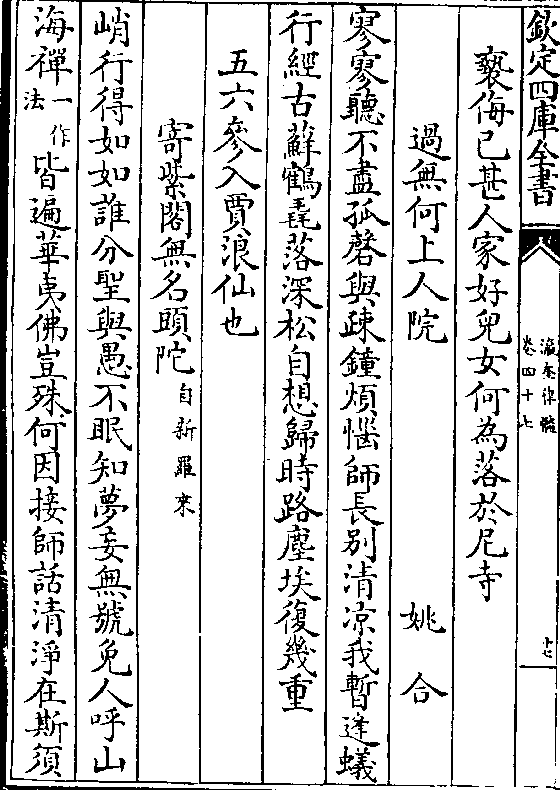 欽定四庫全書
瀛奎律髓
卷四十七
十七
褻侮已甚人家好兒女何為落於尼寺
過無何上人院 姚合
寥寥聽不盡孤磬與疎鐘煩惱師長别清凉我暫逢蟻
行經古蘚鶴毳落深松自想歸時路塵埃復幾重
五六參入賈浪仙也
寄紫閣無名頭陀自新羅來
峭行得如如誰分聖與愚不眠知夢妄無號免人呼山
海禪一作法皆遍華夷佛豈殊何因接師話清淨在斯須